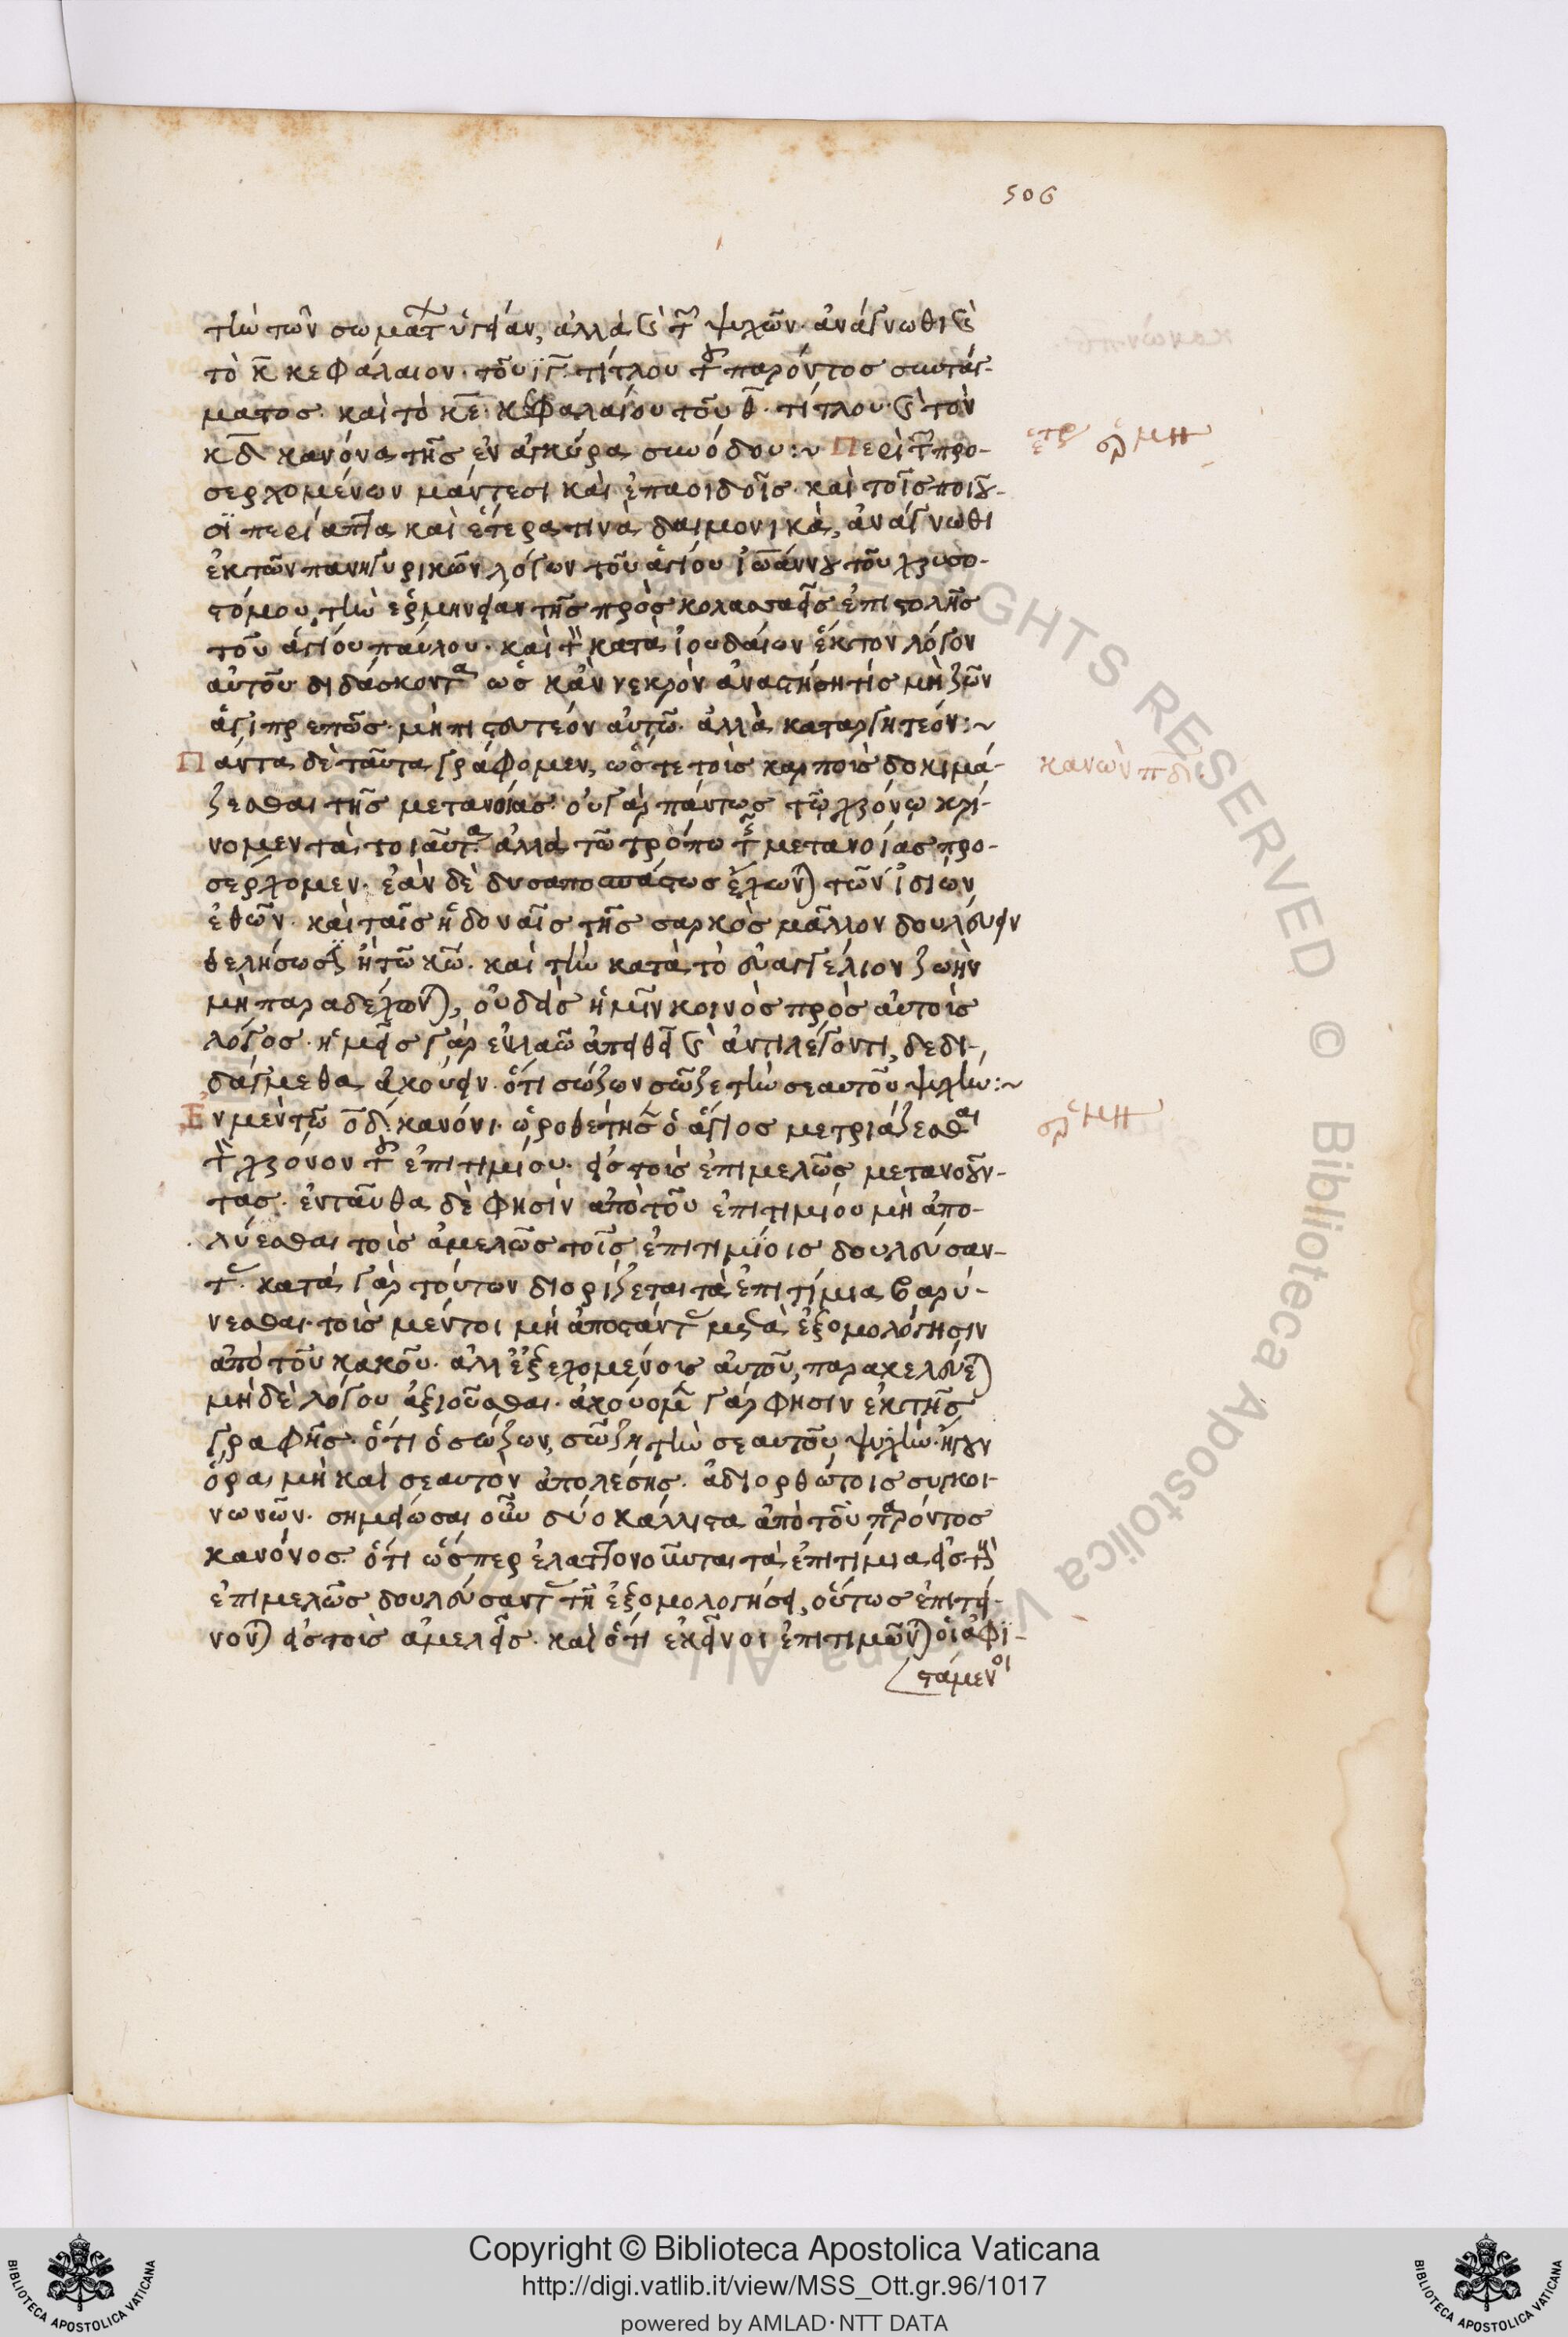 506
τὴν τῶν σωμάτων ὑγείαν, ἀλλὰ καὶ τῶν ψυχῶν· ἀνάγνωθι καὶ
τὸ κ̅ κεφάλαιον· τοῦ ιγ̅ τίτλου τοῦ παρόντος συντάγ-
ματος· καὶ τὸ κε̅ κεφαλαίου τοῦ θ̅ τίτλου· καὶ τὸν
κδ̅ κανόνα τῆς ἐν ἀγκύρα συνόδου:~ Περὶ τῶν προ-
σερχομένων μάντεσι καὶ ἐπαοιδοῖς· καὶ τοῖς ποιοῦ-
σι περίαπτα καὶ ἕτερα τινὰ δαιμονικὰ, ἀνάγνωθι
ἐκ τῶν πανηγυρικῶν λόγων τοῦ ἁγίου Ἰωάννου τοῦ χρυσο-
στόμου, τὴν ἑρμηνείαν τῆς πρὸς κολασσαεῖς ἐπιστολῆς
τοῦ ἁγίου παύλου· καὶ τὸν κατὰ ἰουδαίων ἕκτον λόγον
αὐτοῦ διδάσκοντα ὡς κἂν νεκρὸν ἀναστήση τίς μὴ ζῶν
ἁγιπρεπῶς· μὴ πιστευτέον αὐτῶ· ἀλλὰ καταργητέον:~
Πάντα δὲ ταῦτα γράφομεν, ὥστε τοὺς καρποὺς δοκιμά-
ζεσθαι τῆς μετανοίας· οὐ γὰρ πάντως τῷ χρόνῳ κρί-
νομεν τὰ τοιαῦτα ἀλλὰ τῶ τρόπω τῆς μετανοίας προ-
σέρχομεν· ἐὰν δὲ δυσαποσπάστως ἔχωνται τῶν ἰδίων
ἐθῶν· καὶ ταῖς ἡδοναῖς τῆς σαρκὸς μᾶλλον δουλεύειν
θελήσωσιν ἢ τῶ κω̅· καὶ τὴν κατὰ τὸ εὐαγγέλιον ζωὴν
μὴ παραδέχωνται, οὐδεὶς ἡμῖν κοινὸς πρὸς αὐτοὺς
λόγος· ἡμεῖς γὰρ ἐν λαῶ ἀπειθεῖ καὶ ἀντιλέγοντι, δεδι-
δάγμεθα ἀκούειν· ὅτι σώζων σῶζε τὴν σεαυτοῦ ψυχήν:~
Ἐν μὲν τῶ οδ̅ κανόνι· ὡροθέτησε ὁ ἅγιος μετριάζεσθαι
τὸν χρόνον τοῦ ἐπιτιμίου· εἰς τοὺς ἐπιμελῶς μετανοοῦν-
τας· ἐνταῦθα δὲ φησὶν ἀπὸ τοῦ ἐπιτιμίου μὴ ἀπο-
λύεσθαι τοὺς ἀμελῶς τοῖς ἐπιτιμίοις δουλεύσαν-
τας· κατὰ γὰρ τούτων διορίζεται τὰ ἐπιτίμια βαρύ-
νεσθαι· τοὺς μέντοι μὴ ἀποστάντας μετὰ ἐξομολόγησιν
ἀπὸ τοῦ κακοῦ· ἀλλ' ἐξεχομένους αὐτοῦ, παρακελεύεται
μὴ δὲ λόγου ἀξιοῦσθαι· ἀκούομεν γάρ φησιν ἐκ τῆς
γραφῆς· ὅτι ὁ σώζων, σῶζη τὴν σεαυτοῦ ψυχήν· ἤγουν
ὅρα μὴ καὶ σεαυτὸν ἀπολέσης· ἀδιορθώτοις συγκοι-
νωνῶν· σημείωσαι οὖν δύο κάλλιστα ἀπὸ τοῦ παρόντος
κανόνος· ὅτι ὥσπερ ἐλαττονοῦνται τὰ ἐπιτίμια εἰς τοὺς
ἐπιμελῶς δουλεύσαντας τῆ ἐξομολογήσει, οὕτως ἐπιτεί-
νονται εἰς τοὺς ἀμελεῖς· καὶ ὅτι ἐκεῖνοι ἐπιτιμῶνται οἱ ἀφι-
στάμενοι
κανὼν πδ̅
Copyright © Biblioteca Apostolica Vaticana
http://digi.vatlib.it/view/MSS_Ott.gr.96/1017
powered by AMLAD·NTT DATA
BIBLIOTECA APOSTOLICA VATICANA
BIBLIOTECA APOSTOLICA VATICANA